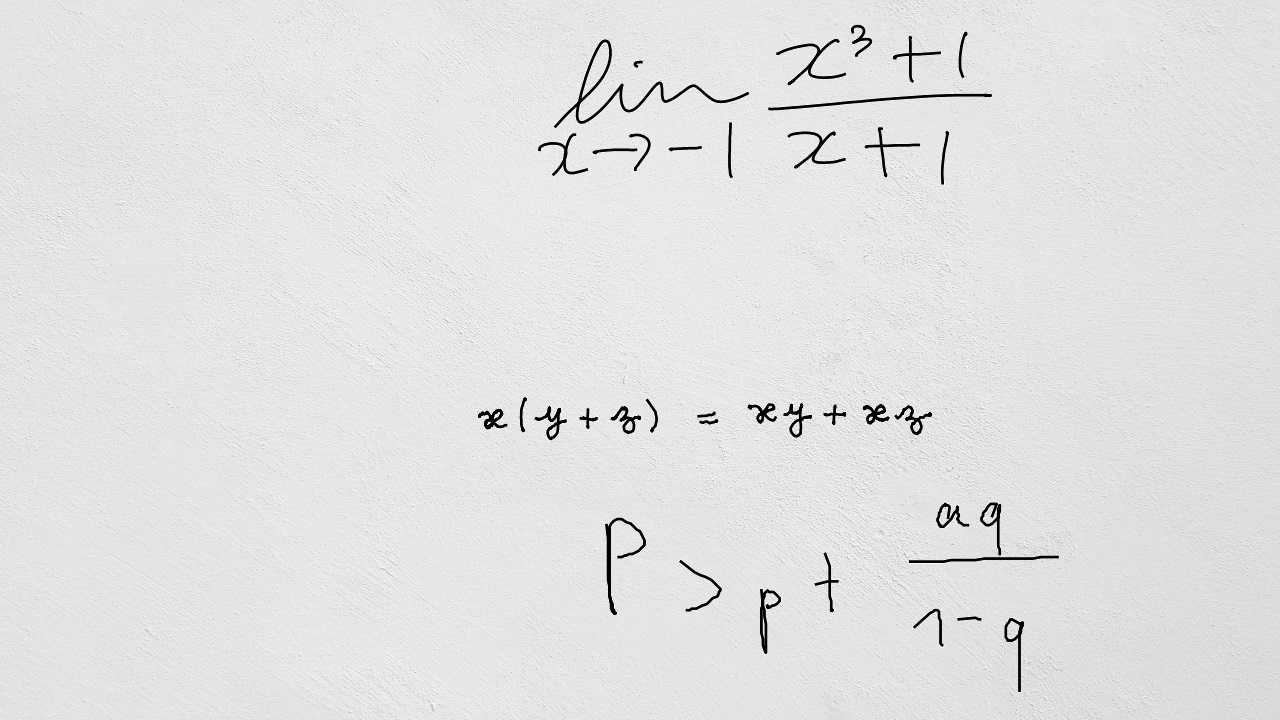 \lim_{x \to -1} \frac{x^3+1}{x+1}
x(y+z) = xy + xz
P > p + \frac{aq}{1-q}